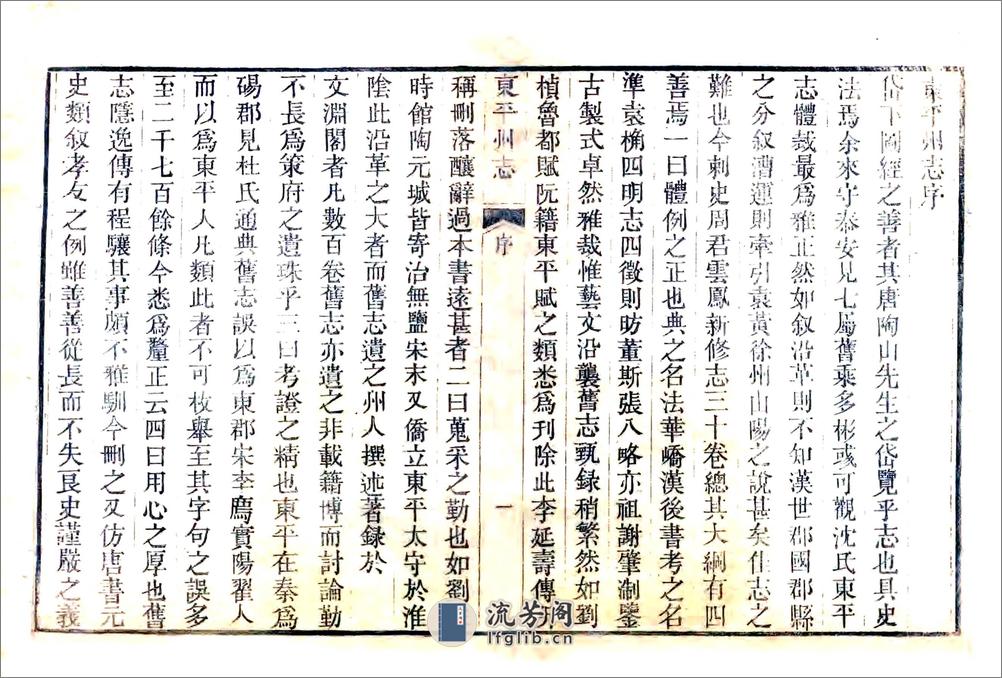 東平州志序
岱下圖經之善者其唐陶山先生之岱覽乎志也具史
法焉余來守泰安見七屬舊乘多彬彧可觀沈氏東平
志體裁最爲雅正然如叙沿革則不知漢世郡國郡縣
之分叙漕運則牽引袁黃徐州山陽之說甚矣佳志之
難也今刺史周君雲鳳新修志三十卷總其大綱有四
善焉一曰體例之正也典之名法華嶠漢後書考之名
準袁桷四明志四徵則昉董斯張八略亦祖謝肇淛鑒
古製式卓然雅裁惟藝文沿襲舊志甄錄稍繁然如劉
楨魯都賦阮籍東平賦之類悉爲刊除此李延壽傳
東平州志 序 一
稱刪落釀辭過本書遠甚者二曰蒐采之勤也如劉
時館陶元城皆寄治無鹽宋末又僑立東平太守於淮
陰此沿革之大者而舊志遺之州人撰述著錄於
文淵閣者凡數百卷舊志亦遺之非載籍博而討論勤
不長爲策府之遺珠乎三曰考證之精也東平在秦爲
碭郡見杜氏通典舊志誤以爲東郡宋李廌實陽翟人
而以爲東平人凡類此者不可枚舉至其字句之誤多
至二千七百餘條今悉爲釐正云四曰用心之厚也舊
志隱逸傳有程驤其事頗不雅馴今刪之又仿唐書元
史類叙孝友之例雖善善從長而不失良史謹嚴之義
流芳閣
lfglib.cn